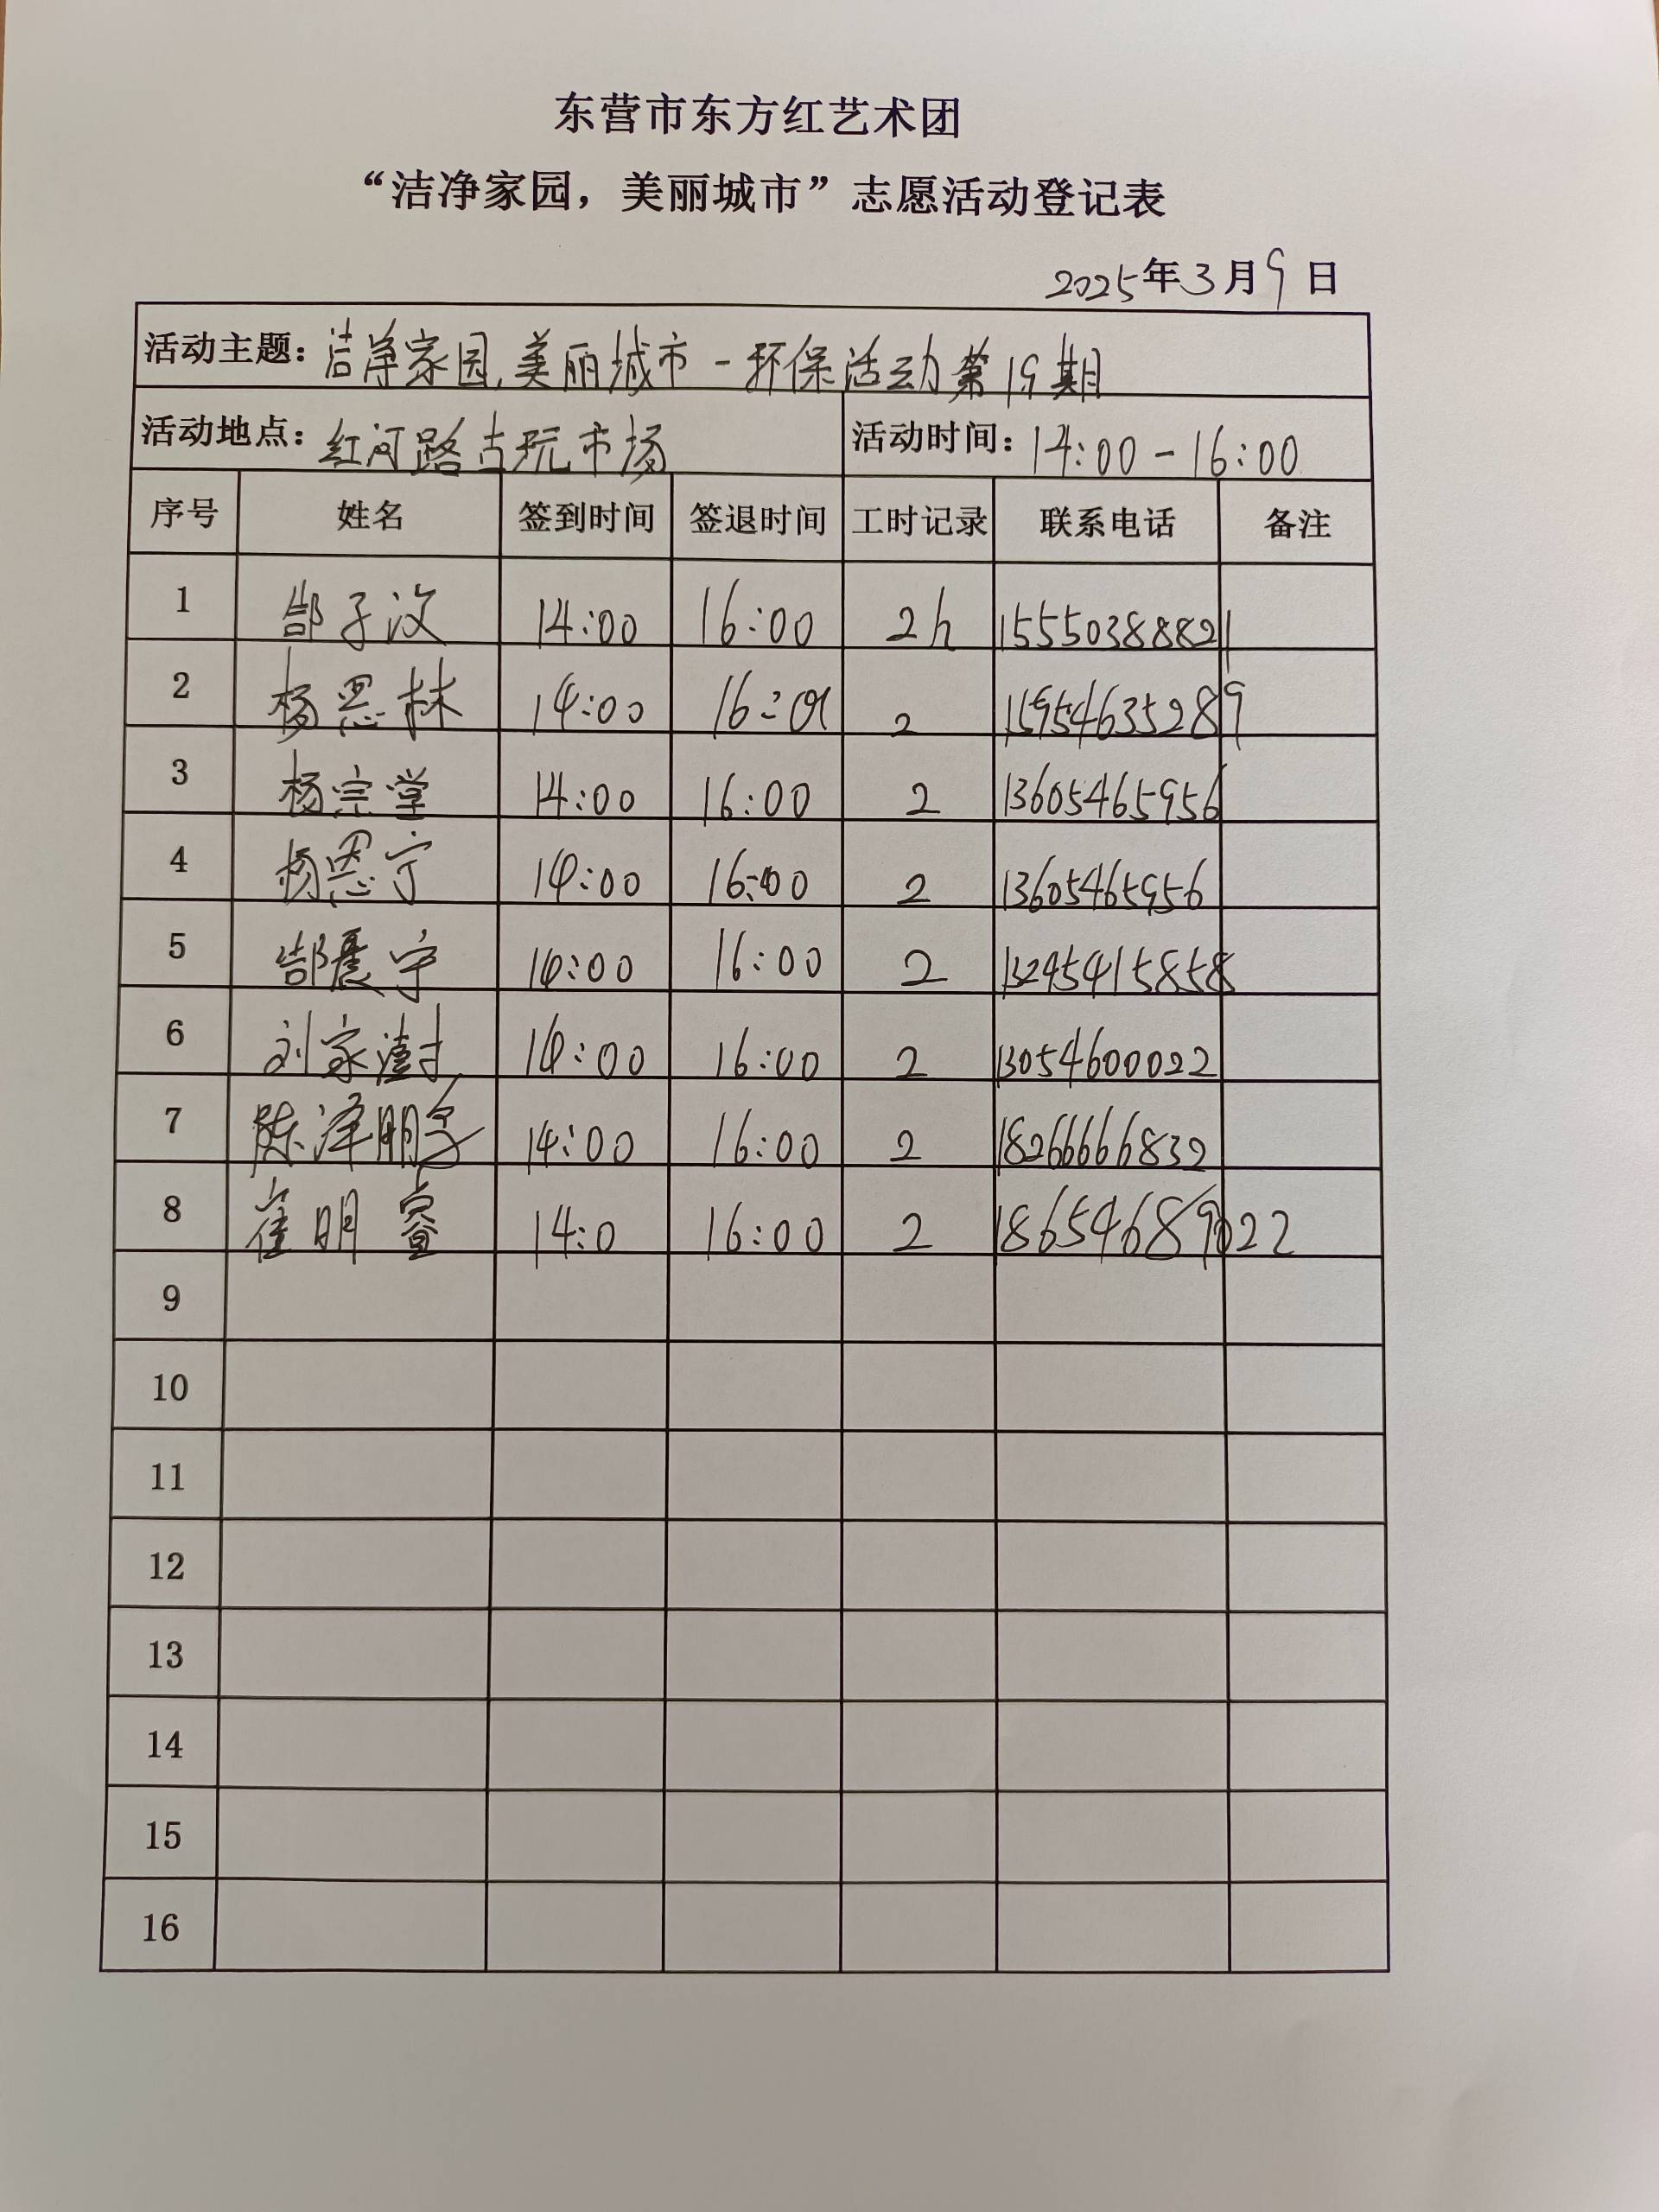 东营市东方红艺术团
“洁净家园，美丽城市”志愿活动登记表
2025年3月9日
活动主题：洁净家园,美丽城市-环保活动第19期
活动地点：红河路古玩市场 活动时间：14:00-16:00
序号 姓名 签到时间 签退时间 工时记录 联系电话 备注
1 郜子汶 14:00 16:00 2h 15550388821
2 杨恩林 14:00 16:00 2 15954635289
3 杨宗堂 14:00 16:00 2 13605465956
4 杨恩宁 14:00 16:00 2 13605465956
5 郜晨宇 14:00 16:00 2 13295415858
6 刘家澍 14:00 16:00 2 13054600022
7 陈泽鹏 14:00 16:00 2 18266666832
8 崔明睿 14:0 16:00 2 18654689022
9
10
11
12
13
14
15
16